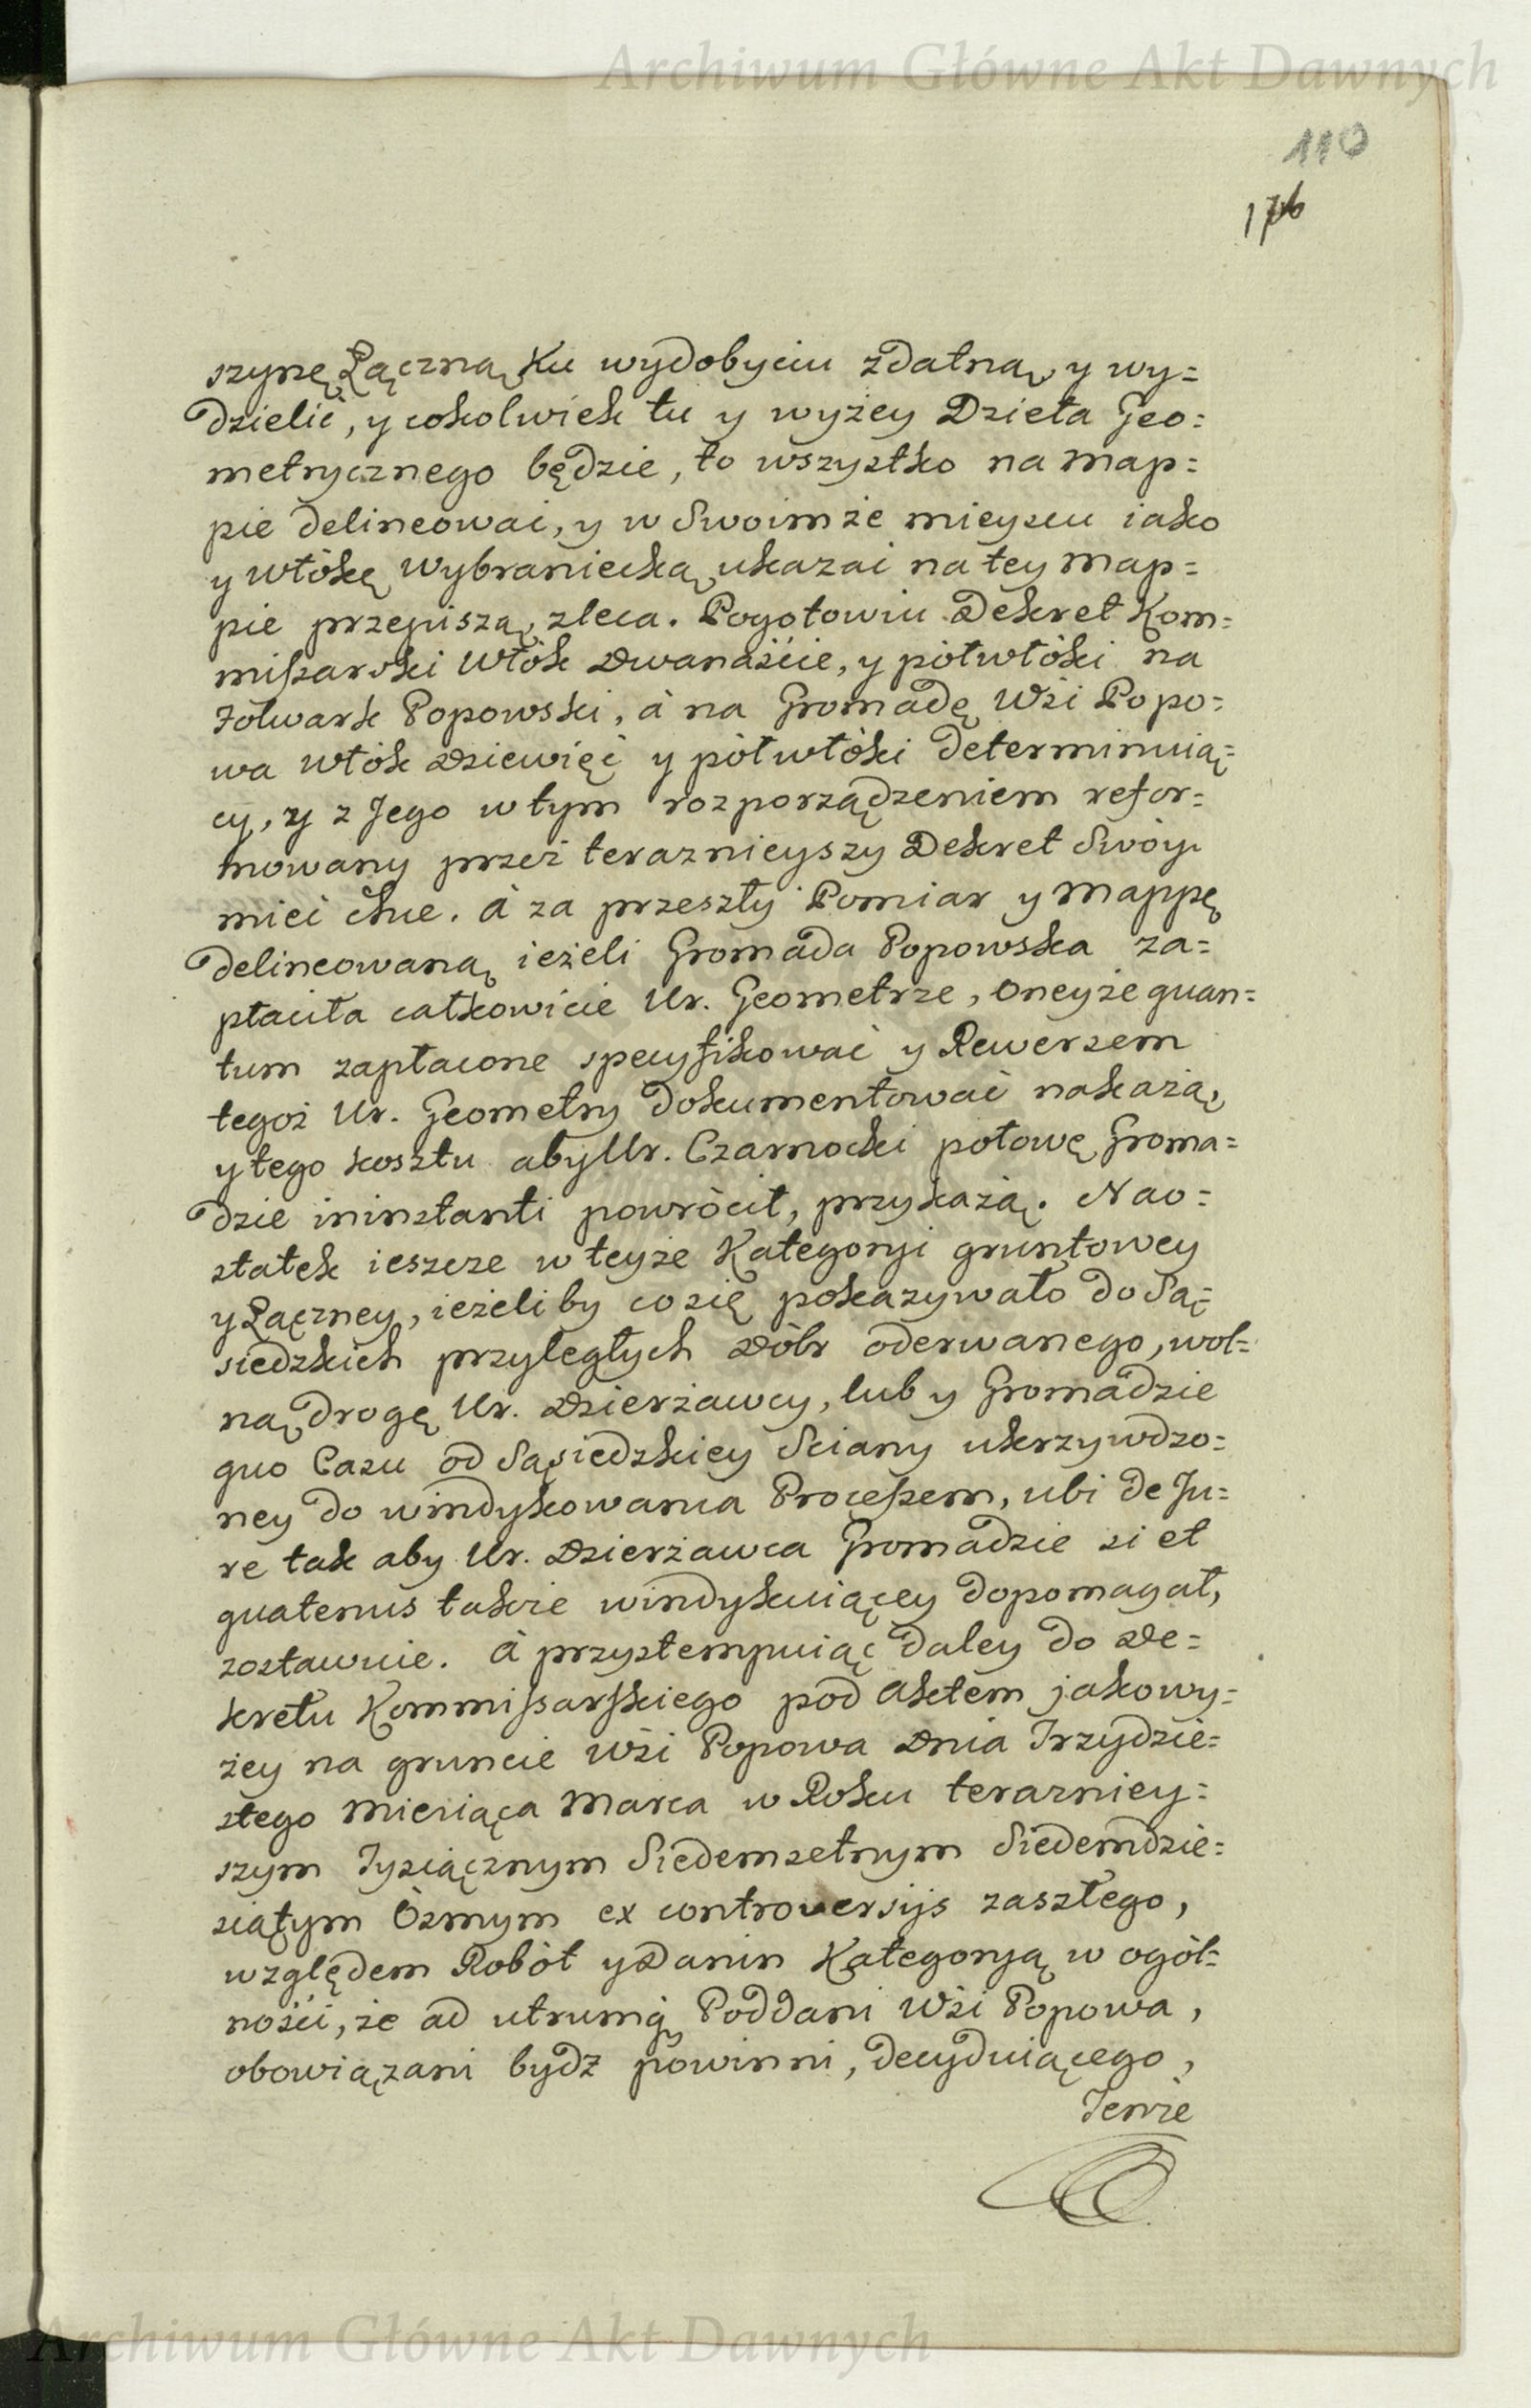 Archiwum Główne Akt Dawnych
110
176
szynę Łączną ku wydobyciu zdatną, y wy=
dzielić, y cokolwiek tu y wyżey Dzieła Geo=
metrycznego będzie, to wszystko na map=
pie delineować, y w Swoimże mieyscu iako
y włókę Wybraniecką ukazać na tey map=
pie przepiszą, zleca. Pogotowiu Dekret Kom=
missarski Włók Dwanaście, y półwłóki na
Folwark Popowski, à na Gromadę Wsi Popo=
wa włók Dziewięć y półwłóki determinuią=
cy, y z Jego w tym rozporządzeniem refor=
mowany przez teraznieyszy Dekret Swóy
mieć chce. à za przeszły Pomiar y Mappę
delineowaną ieżeli Gromada Popowska za=
płaciła całkowicie Ur. Geometrze, oneyże quan=
tum zapłacone specyfikować y Rewersem
tegoż Ur. Geometry dokumentować nakażą,
y tego kosztu aby Ur. Czarnocki połowę Groma=
dzie ininstanti powrócił, przykażą. Nao=
statek ieszcze w teyże Kategoryi gruntowey
y Łączney, ieżeliby co się pokazywało do Są=
siedzkich przyległych Dóbr oderwanego, wol=
ną drogę Ur. Dzierżawcy, lub y Gromadzie
quo Casu od Sąsiedzkiey Sciany ukrzywdzo=
ney do windykowania Processem, ubi de Ju=
re tak aby Ur. Dzierżawca Gromadzie si et
quatenus takie windykuiącey dopomagał,
zostawuie. à przystempuiąc daley do De=
kretu Kommissarskiego pod Aktem jakowy=
żey na gruncie Wsi Popowa Dnia Trzydzie=
stego Miesiąca Marca w Roku terazniey=
szym Tysiącznym Siedemsetnym Siedemdzie=
siątym Òsmym ex controversijs zaszłego,
względem Robót y Danin Kategoryą w ogól=
ności, że ad utrumq Poddani Wsi Popowa,
obowiązani bydz powinni, decyduiącego,
Tenże
Archiwum Główne Akt Dawnych